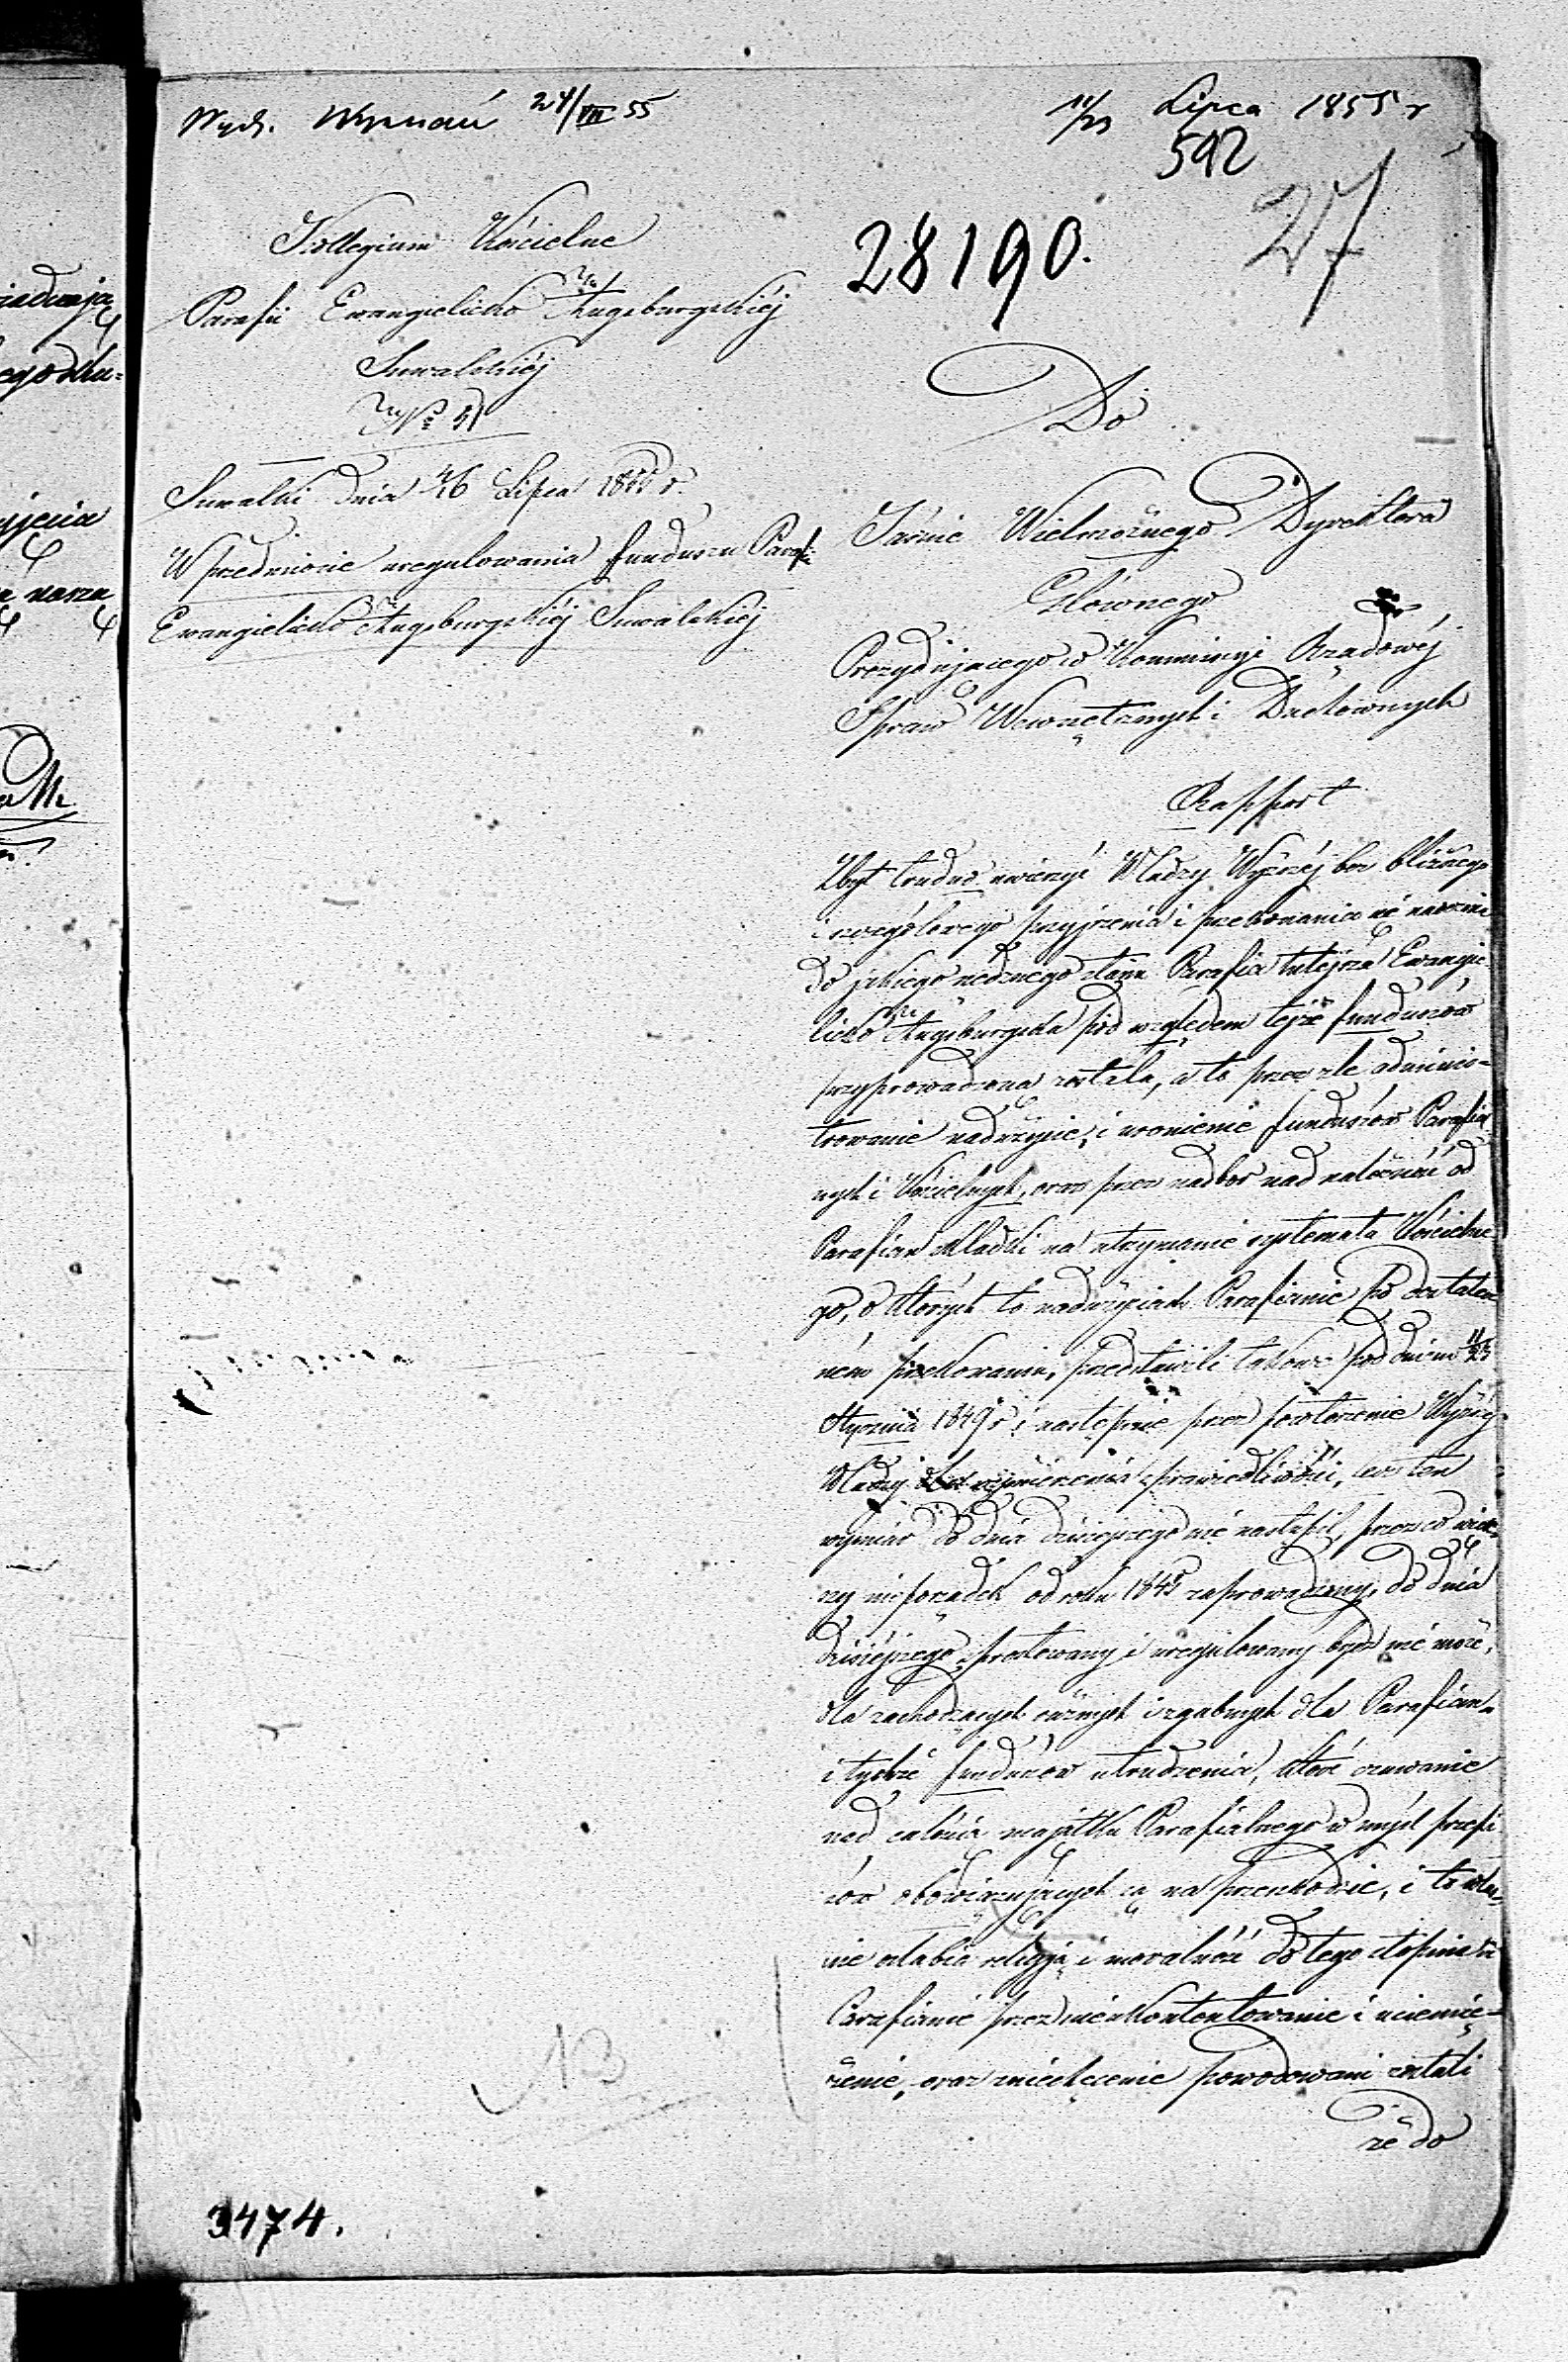 Wydz. Wyznań 24/VII 55
11/23 Lipca 1855 r
592
27
28190.
Kollegium Kościelne
Parafii Ewangielicko Augsburgskiéj
Suwalskiéj
No 51
Suwałki dnia 4/16 Lipca 1855 r.
W przedmiocie uregulowania funduszu Parafii
Ewangielicko Augsburgskiéj Suwalskiéj
Do
Jaśnie Wielmożnego Dyrektora
Głównego
Prezydującego w Kommissyi Rządowéj
Spraw Wewnętrznych i Duchownych
Rapport
Zbyt trudno uwierzyć Władzy Wyższéj bez bliższego
i szczegółowego przyjrzenia i przekonania się naocznie
do jakiego nędznego stanu Parafia tutéjsza Ewangie
licko Augsburgska pod względem tejże funduszów
przyprowadzona została, a to przez złe adminis-
trowanie nadużycie, i uronienie funduszów Parafial
nych i Kościelnych, oraz przez nadbor nad należność od
Parafian składki na utrzymanie systemata Kościelne
go, o których to nadużyciach Parafianie po dostatecz
ném przekonaniu, przedstawili takowe pod dniem 11/23
Stycznia 1849 r i następnie przez powtórzenie Wyższéj
Władzy wymierzenia sprawiedliwości, lecz ten
wymiar do dnia dzisiejszego nie nastąpił, przez co więk
szy nieporządek od roku 1845 zaprowadzony, do dnia
dzisiéjszego prostowany i uregulowany bydź nie może,
dla zachodzących różnych i zgubnych dla Parafian
i tychże funduszów utrudzenia, które czuwanie
nad całością majątku Parafialnego w myśl przepi
sów obowiązujących są na przeszkodzie, i to
nie osłabia religją i moralność do tego stopnia że
Parafianie przez nieukontentowanie i uciemię-
żenie, oraz zniechęcenie powodowani zostali
że do
3474.